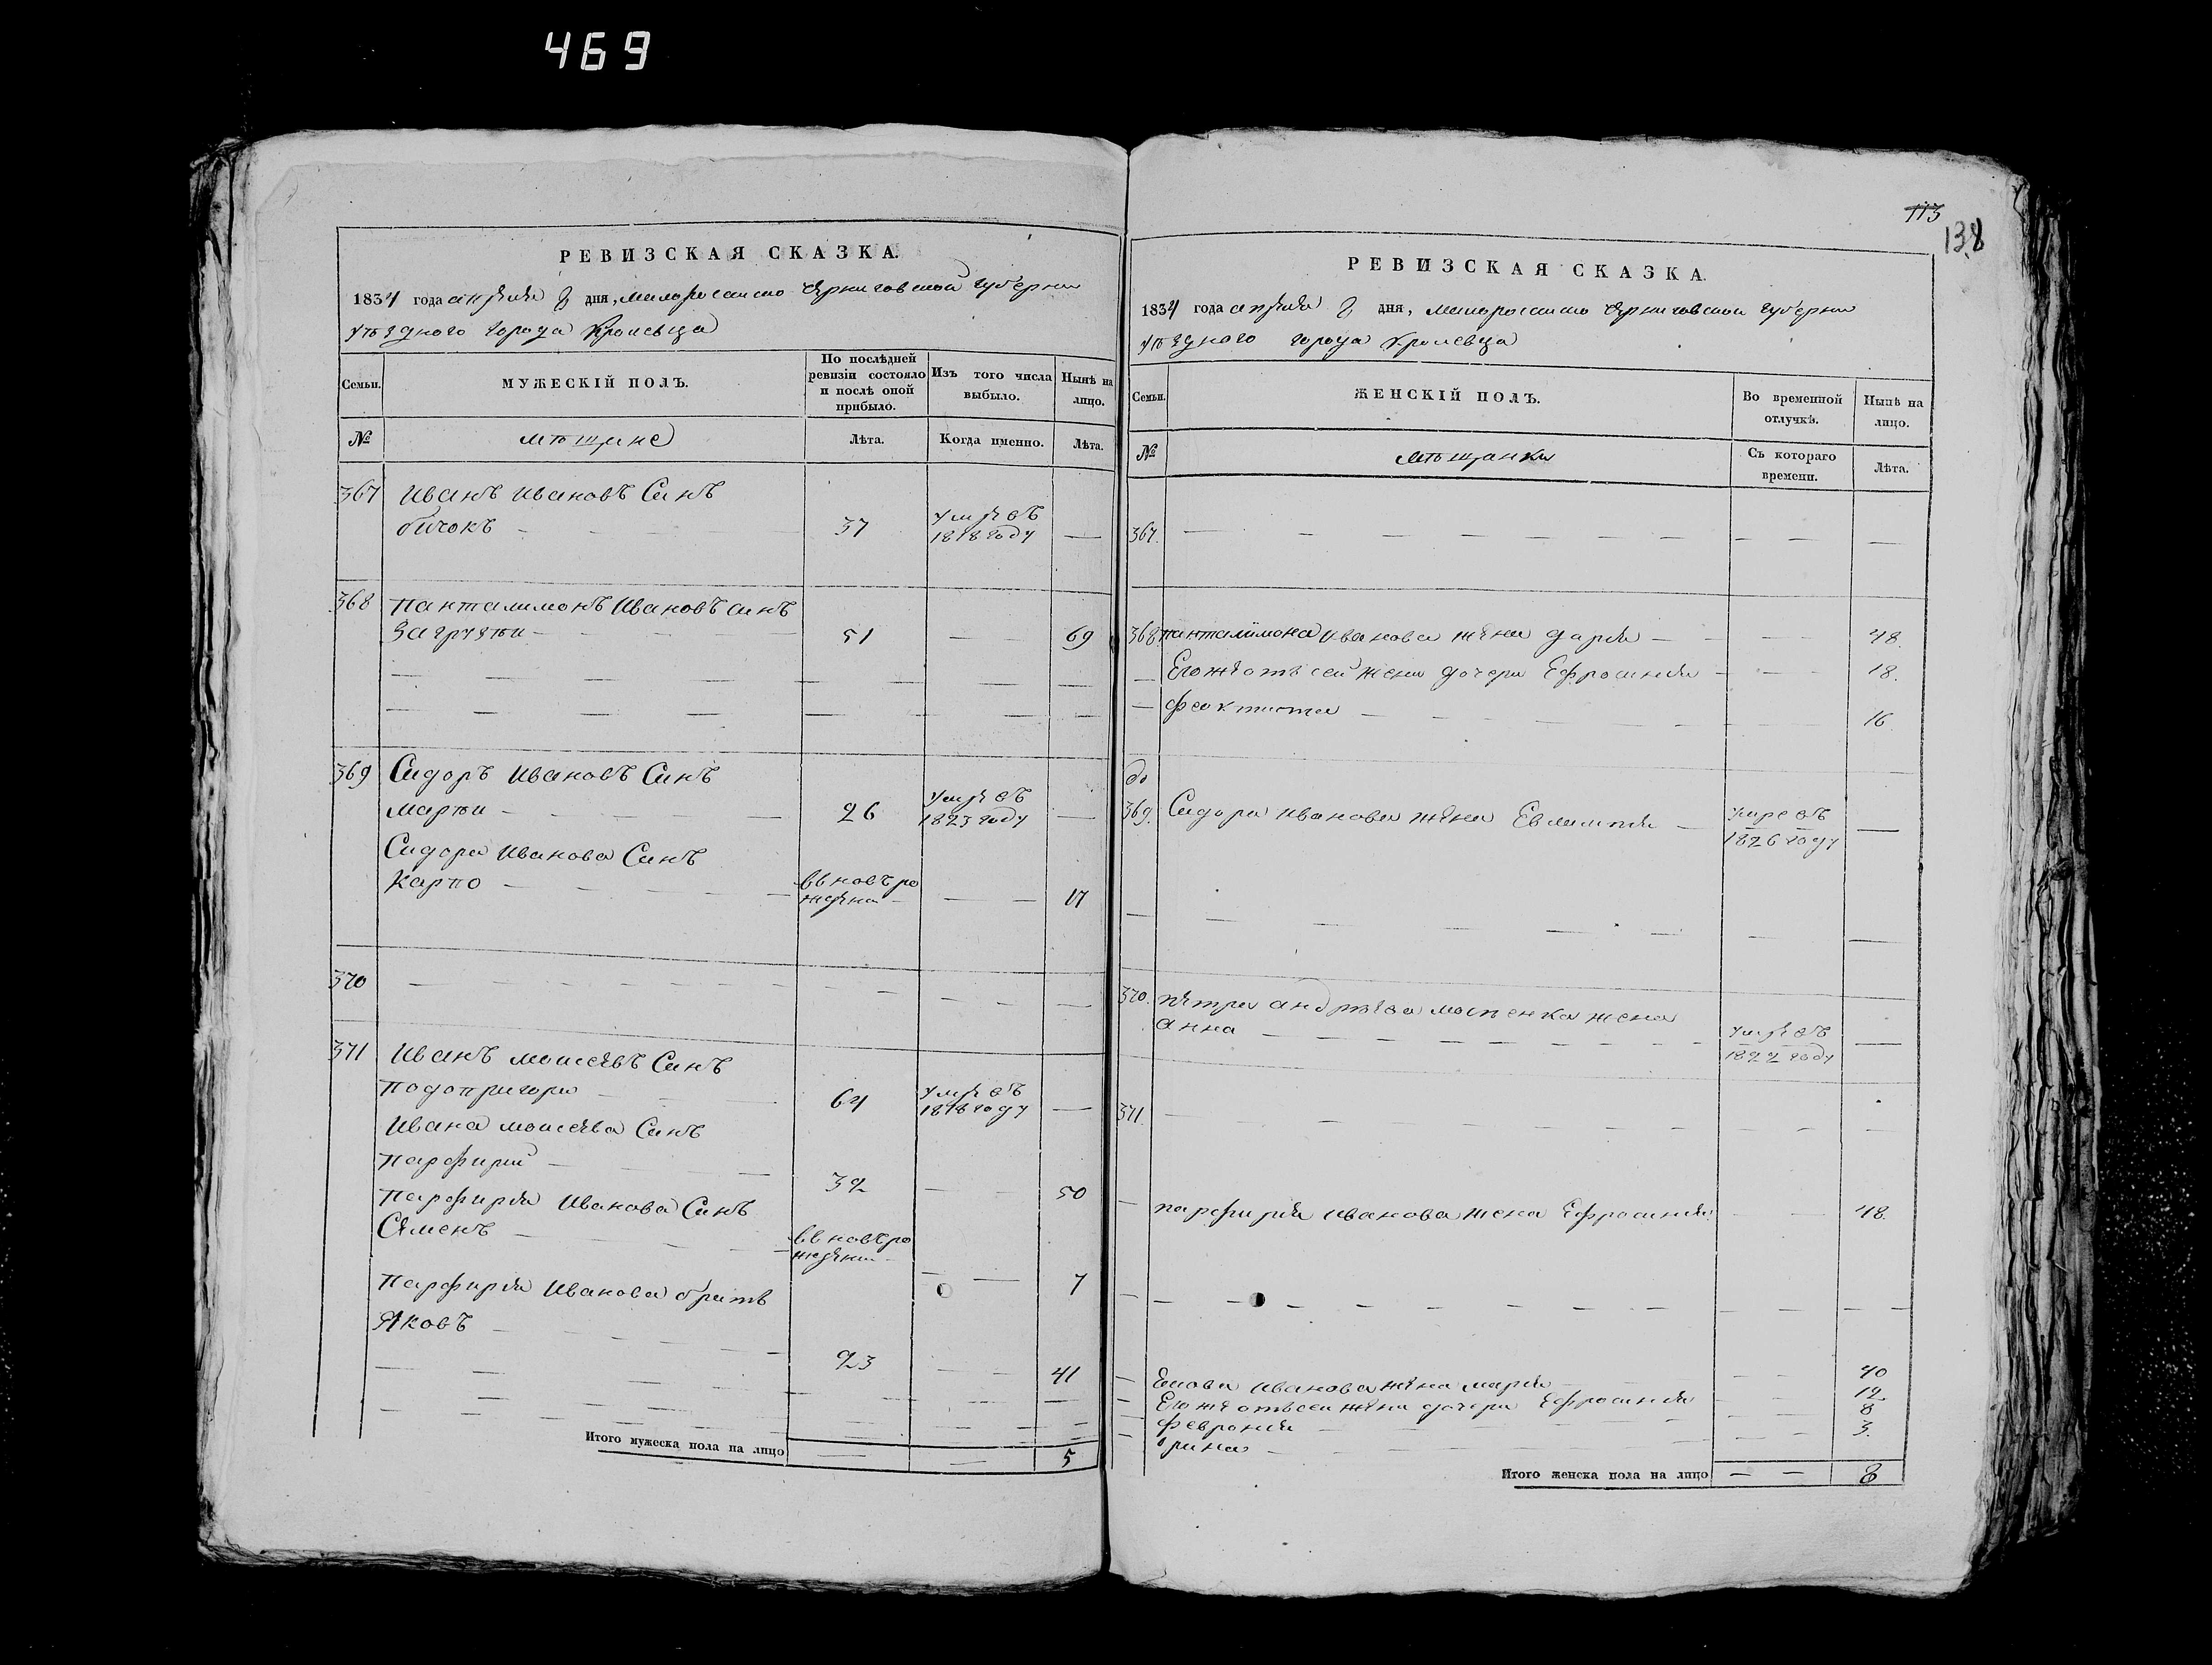 469
113
138
РЕВИЗСКАЯ СКАЗКА.
1834 года апреля дня, малоросийско Черниговской губерни
уѣздного города Кролевца
Семьи.
МУЖЕСКІЙ ПОЛЪ.
По послѣдней ревизіи состояло и послѣ оной прибыло.
Изъ того числа выбыло.
Нынѣ на лицо.
№
мѣщане
Лѣта.
Когда именно.
Лѣта.
367 Иванъ Ивановъ Синъ
бичокъ 37 умре въ 1818 году —
368 Панталимонъ Ивановъ синъ
51 — — 69
369 Сидоръ Ивановъ Синъ
26 умре въ 1823 году —
Сидора Иванова Синъ
Карпо — вновь рожденъ — — 17
370 — — —
371 Иванъ Моисеевъ Синъ
Подопригора 64 умре въ 1818 году —
Ивана моисеева Синъ
Парфирий — 32 — — 50
Парфирия Иванова Синъ
Семенъ — вновь рожденъ — — 7
Парфирия Иванова братъ
Яковъ — 23 — — 41
Итого мужеска пола на лицо — — 5
РЕВИЗСКАЯ СКАЗКА.
1834 года апреля дня, малоросийско Черниговской губерни
уѣздного города Кролевца
Семьи.
ЖЕНСКІЙ ПОЛЪ.
Во временной отлучкѣ.
Нынѣ на лицо.
№
мѣщанки
Съ котораго времени.
Лѣта.
367. — — —
368. панталимона иванова жена дария — — 48.
Его же отъ сей жени дочери Ефросиния — — 18.
феоктиста — — 16
369. Сидора иванова жена Евлампия — умре въ 1826 году —
370. петра андреева моспенка жена
анна — умре въ 1822 году —
371. — — —
парфирия иванова жена Ефросиния — — 48.
— — —
Якова иванова жена мария — — 40
Его же отъ сей жени дочери Ефросиния — — 12.
феврония — — 8
орина — — 3.
Итого женска пола на лицо — — 8